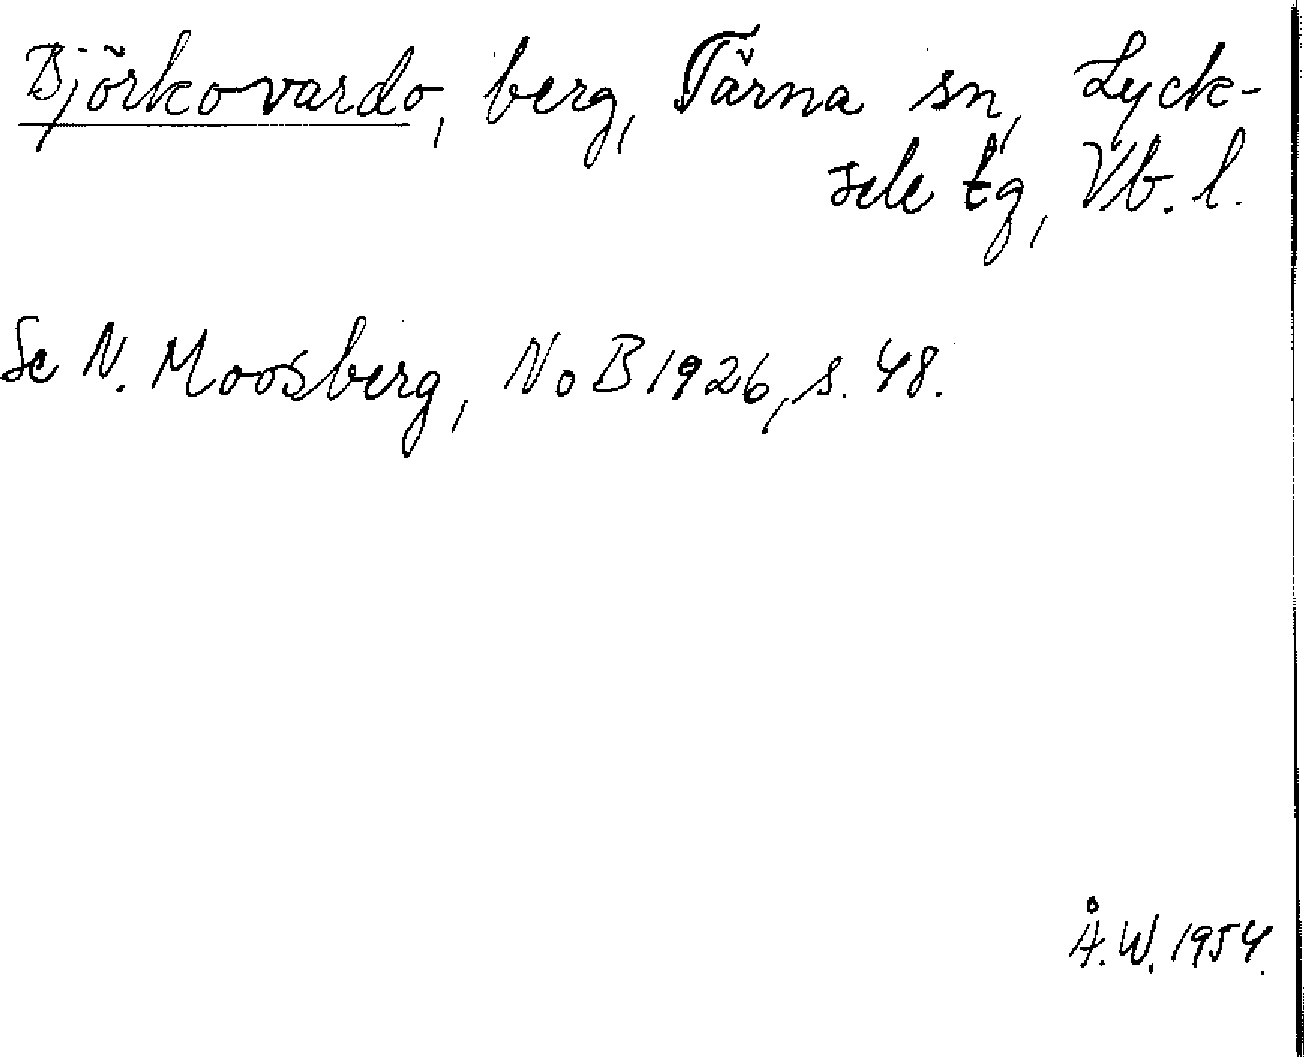 Björkovardo, berg, Tärna sn, Lyck-
sele tg, Vb. l.
Se N. Moosberg, NoB 1926, s. 48.
Å. W. 1954.